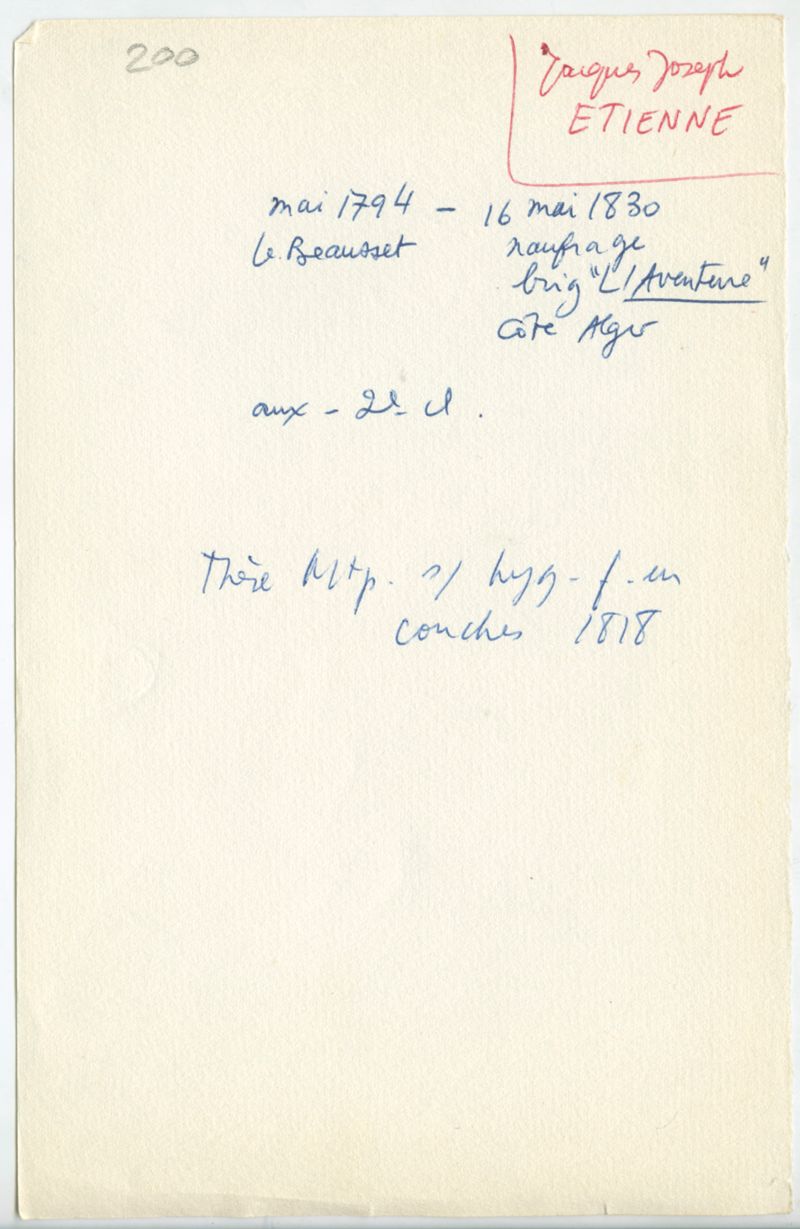 200
Jacques Joseph
ETIENNE
mai 1794 – 16 mai 1830
le Beausset naufrage
brig "L'Aventure"
Côte Alger
aux - 2e cl.
Thèse Mtp. s/ hyg - f. en
couches 1818